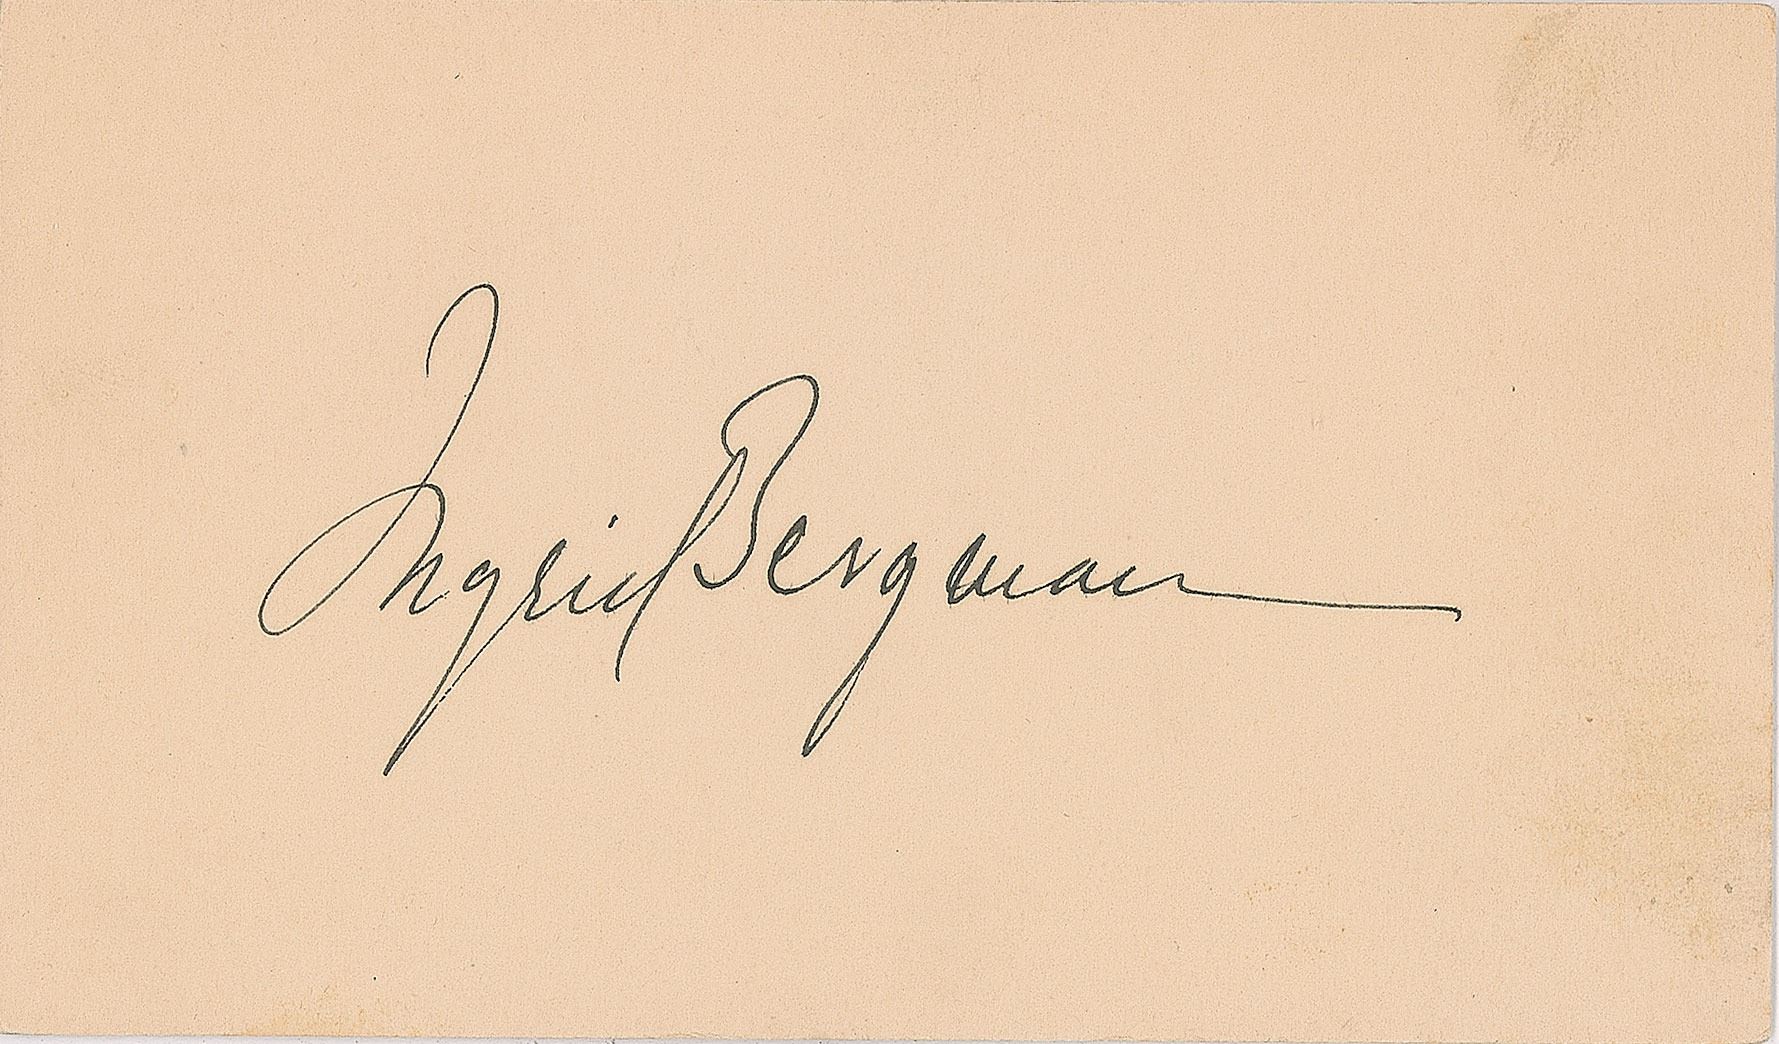 Ingrid Bergman